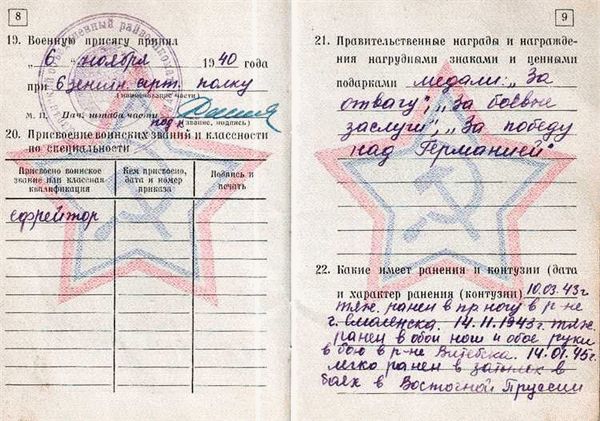 8
19. Военную присягу принял
"6" ноября 1940 года
при 6 зенит. арт. полку
(наименование части)
М. П. Нач. штаба части
(звание, подпись)
20. Присвоение воинских званий и классности
по специальности
Присвоено воинское звание или классная квалификация
Кем присвоено, дата и номер приказа
Подпись и печать
ефрейтор
9
21. Правительственные награды и награжде-
ния нагрудными знаками и ценными
подарками медали: „За
отвагу", „За боевые
заслуги", „За победу
над Германией"
22. Какие имеет ранения и контузии (дата
и характер ранения (контузии) 10.03.43г
тяж. ранен в пр. ногу в р-не
г. Смоленска. 14.11.1943г. тяж.
ранен в обои ноги и обое руки
в бою в р-не Витебска. 14.01.45г.
легко ранен в затылок в
боях в Восточной Пруссии